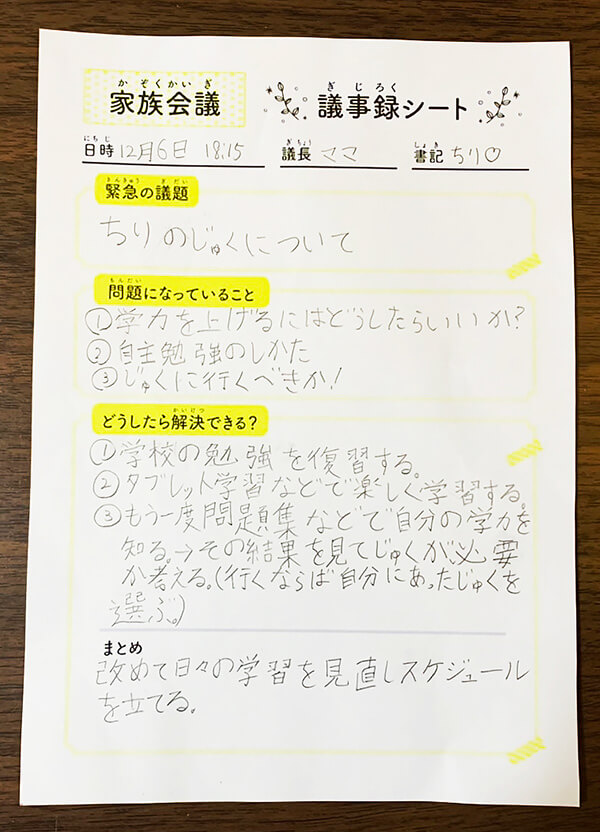 家族会議 議事録シート
日時 12月6日 18:15 議長 ママ 書記 ちり♡
緊急の議題
ちりのじゅくについて
問題になっていること
①学力を上げるにはどうしたらいいか?
②自主勉強のしかた
③じゅくに行くべきか!
どうしたら解決できる?
①学校の勉強を復習する。
②タブレット学習などで楽しく学習する。
③もう一度問題集などで自分の学力を
知る。→その結果を見てじゅくが必要
か考える。(行くならば自分にあったじゅくを
選ぶ。)
まとめ
改めて日々の学習を見直しスケジュール
を立てる。